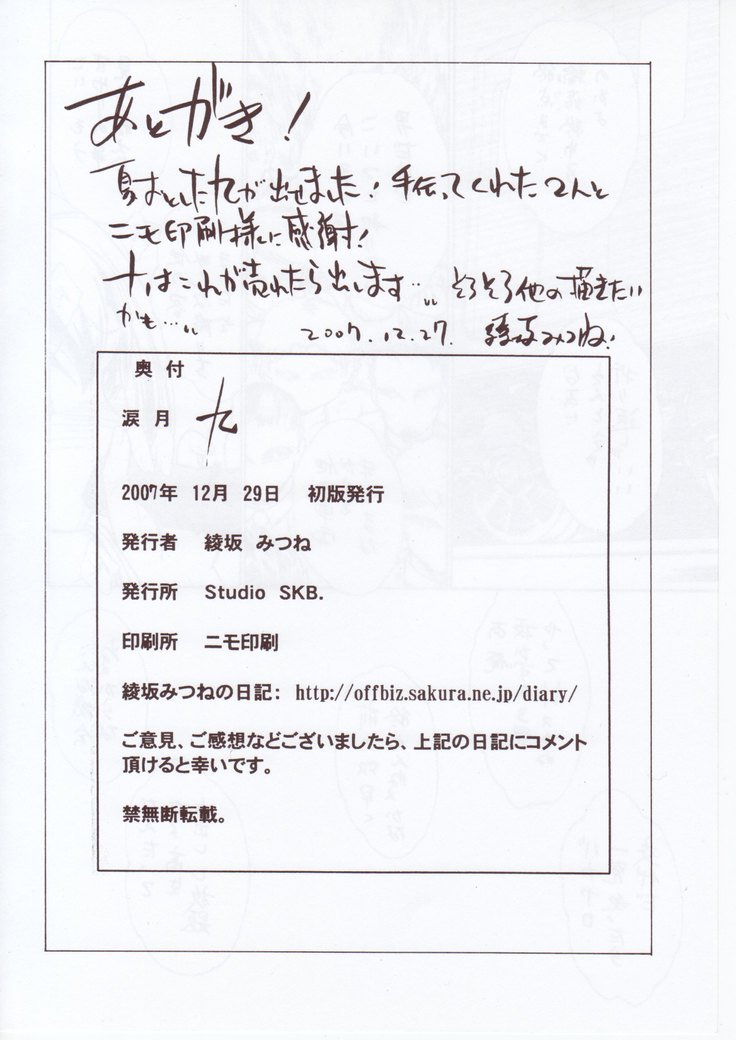 あとがき！
夏おとした九が出せました！手伝ってくれた2人と
ニモ印刷様に感謝！
十はこれが売れたら出します…。そろそろ他の描きたい
かも…。 2007.12.27. 綾坂みつね！
奥付
涙月 九
2007年 12月 29日 初版発行
発行者 綾坂 みつね
発行所 Studio SKB.
印刷所 ニモ印刷
綾坂みつねの日記: http://offbiz.sakura.ne.jp/diary/
ご意見、ご感想などございましたら、上記の日記にコメント
頂けると幸いです。
禁無断転載。